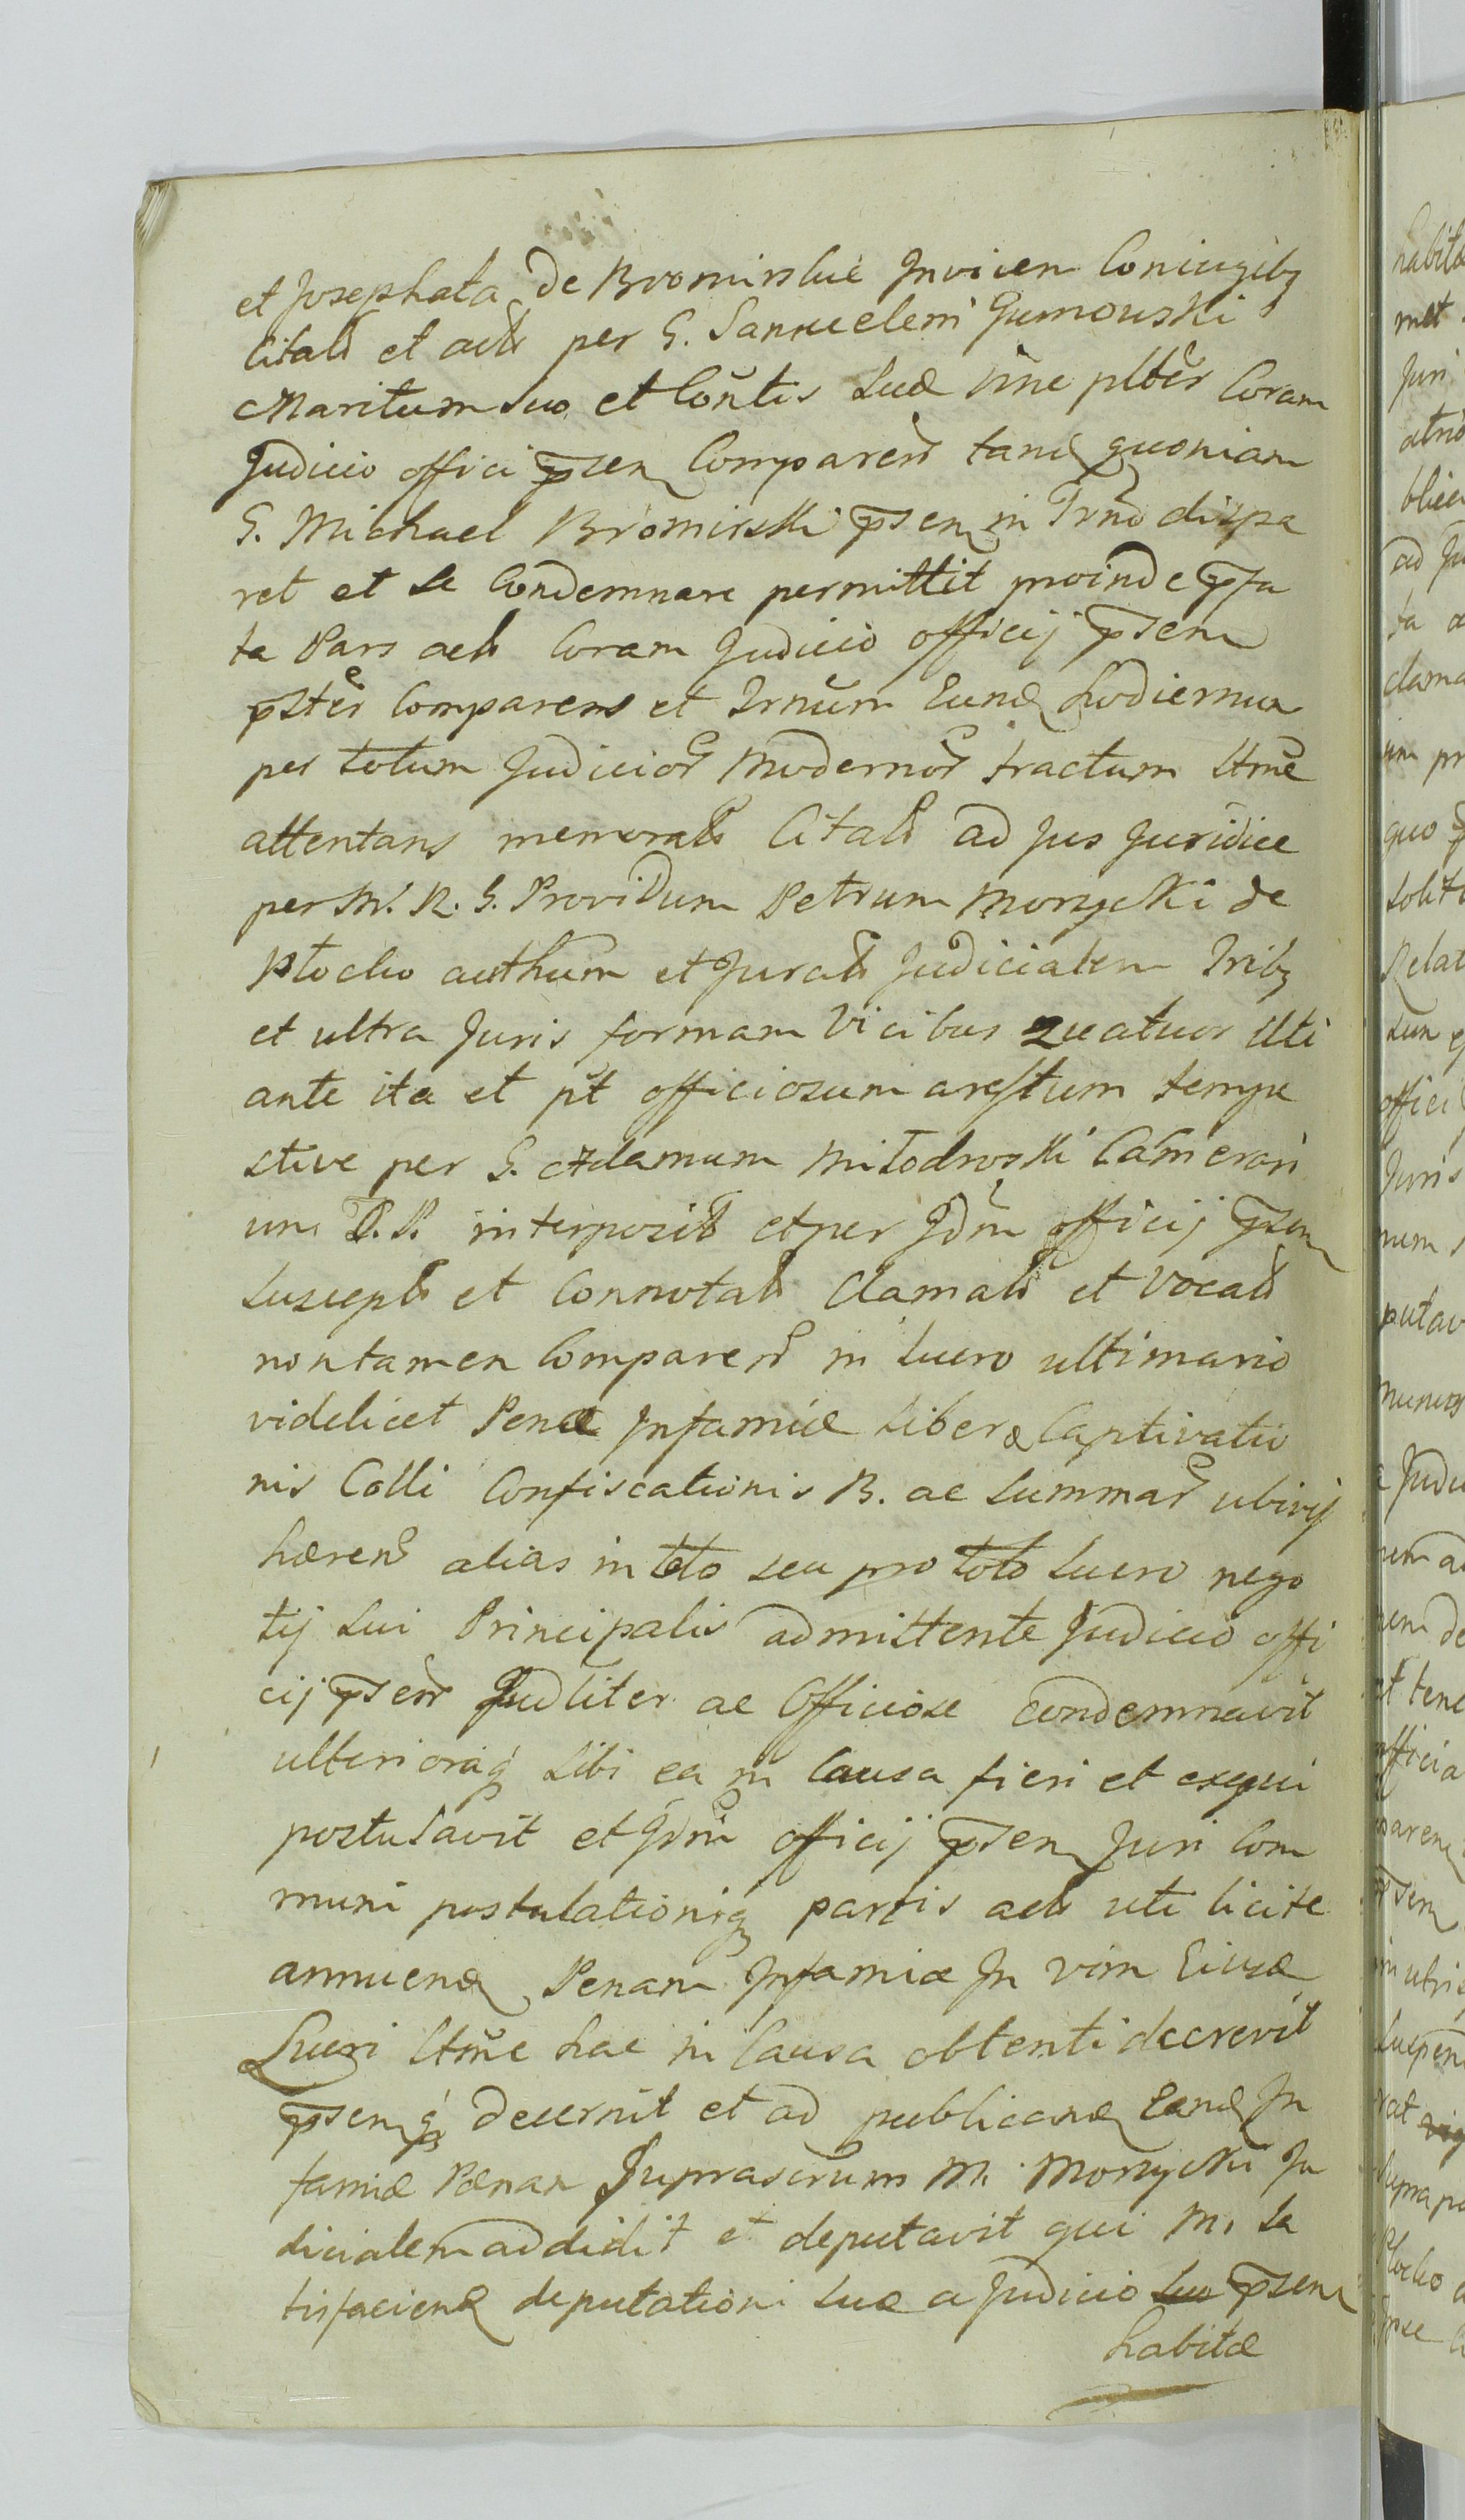 et Josephata De Bromirskie Invicem Coniugibq
Citatā et actā per G. Samuelem Gumowski
Maritum suo et Cońtis suæ ńne pltěr Coram
Judicio offici p̄sen Comparen tand quoniam
G. Michael Bromirski p̄sen in Trnō dispa
ret et se Condemnare permittit proinde p̄fa
ta Pars act Coram Judicio officij p̄sen
p̄stěr Comparens et Trnūm Eund hodiernum
per totum Judicior Modernor tractum ltmě
attentans memorat Citat ad Jus Juridice
per M. R. G. Providum Petrum Morzycki de
Plocko authum et Jurat Judicialem Tribq
et ultra Juris formam Vicibus quatuor Uti
ante ita et p̄t officiosum arestum tempe
stive per G. Adamum Miłodroski Camerari
um P.P. interposit et per Jdm̄ officij p̄sen
suscept et Connotat Clamat et Vocat
non tamen Comparen in lucro ultimario
videlicet Penæ Infamiæ liberæ Captivatio
nis Colli Confiscationis B. ac summar ubivis
hæren alias in toto seu pro toto lucro nego
tij sui Principalis admittente Judicio offi
cij p̄sen Judliter ac Officiose condemnavit
ulterioraq sibi ea in Causa fieri et exequi
postulavit et Jdm̄ officij p̄sen Juri Com
muni postulationiq partis act uti licite
annuend Penam Infamiæ In vim Eiusd
Lucri ltmě hac in Causa obtenti decrevit
p̄senq decernit et ad publicand Eand In
famiæ Pænam Suprascrum M. Morzycki Ju
dicialem addidit et deputavit qui M. sa
tisfaciend deputationi suæ a Judicio suo p̄sen
habitæ